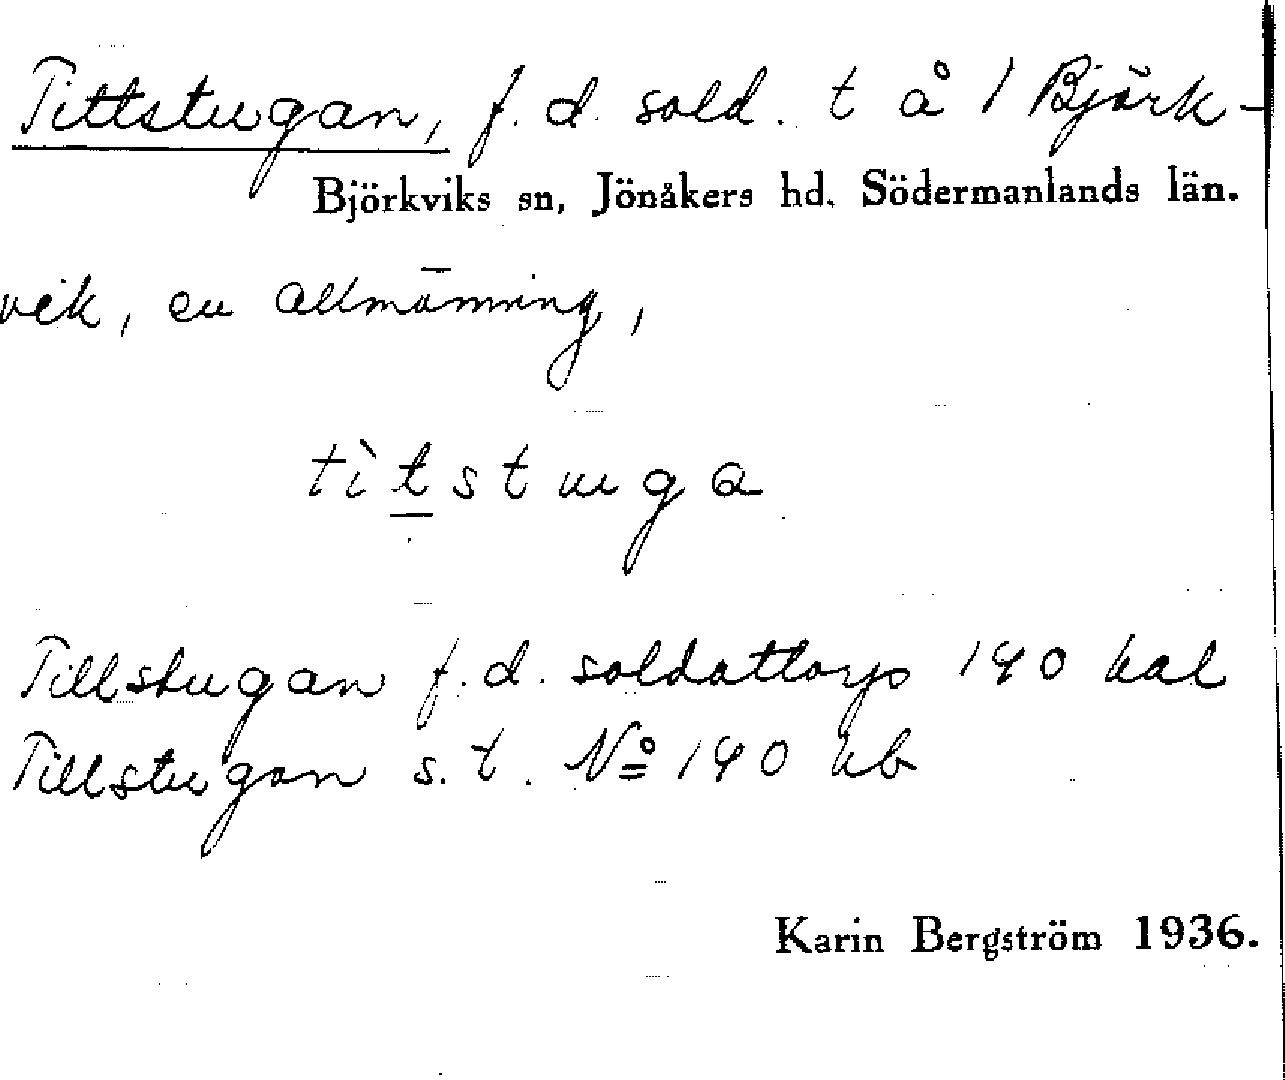 Tittstugan, f. d. sold. t å 1 Björk-
Björkviks sn, Jönåkers hd. Södermanlands län.
vik, en allmänning,
tìtstuga
Tillstugan f. d. soldattorp 140 hal
Tillstugan s. t. No 140 hb
Karin Bergström 1936.